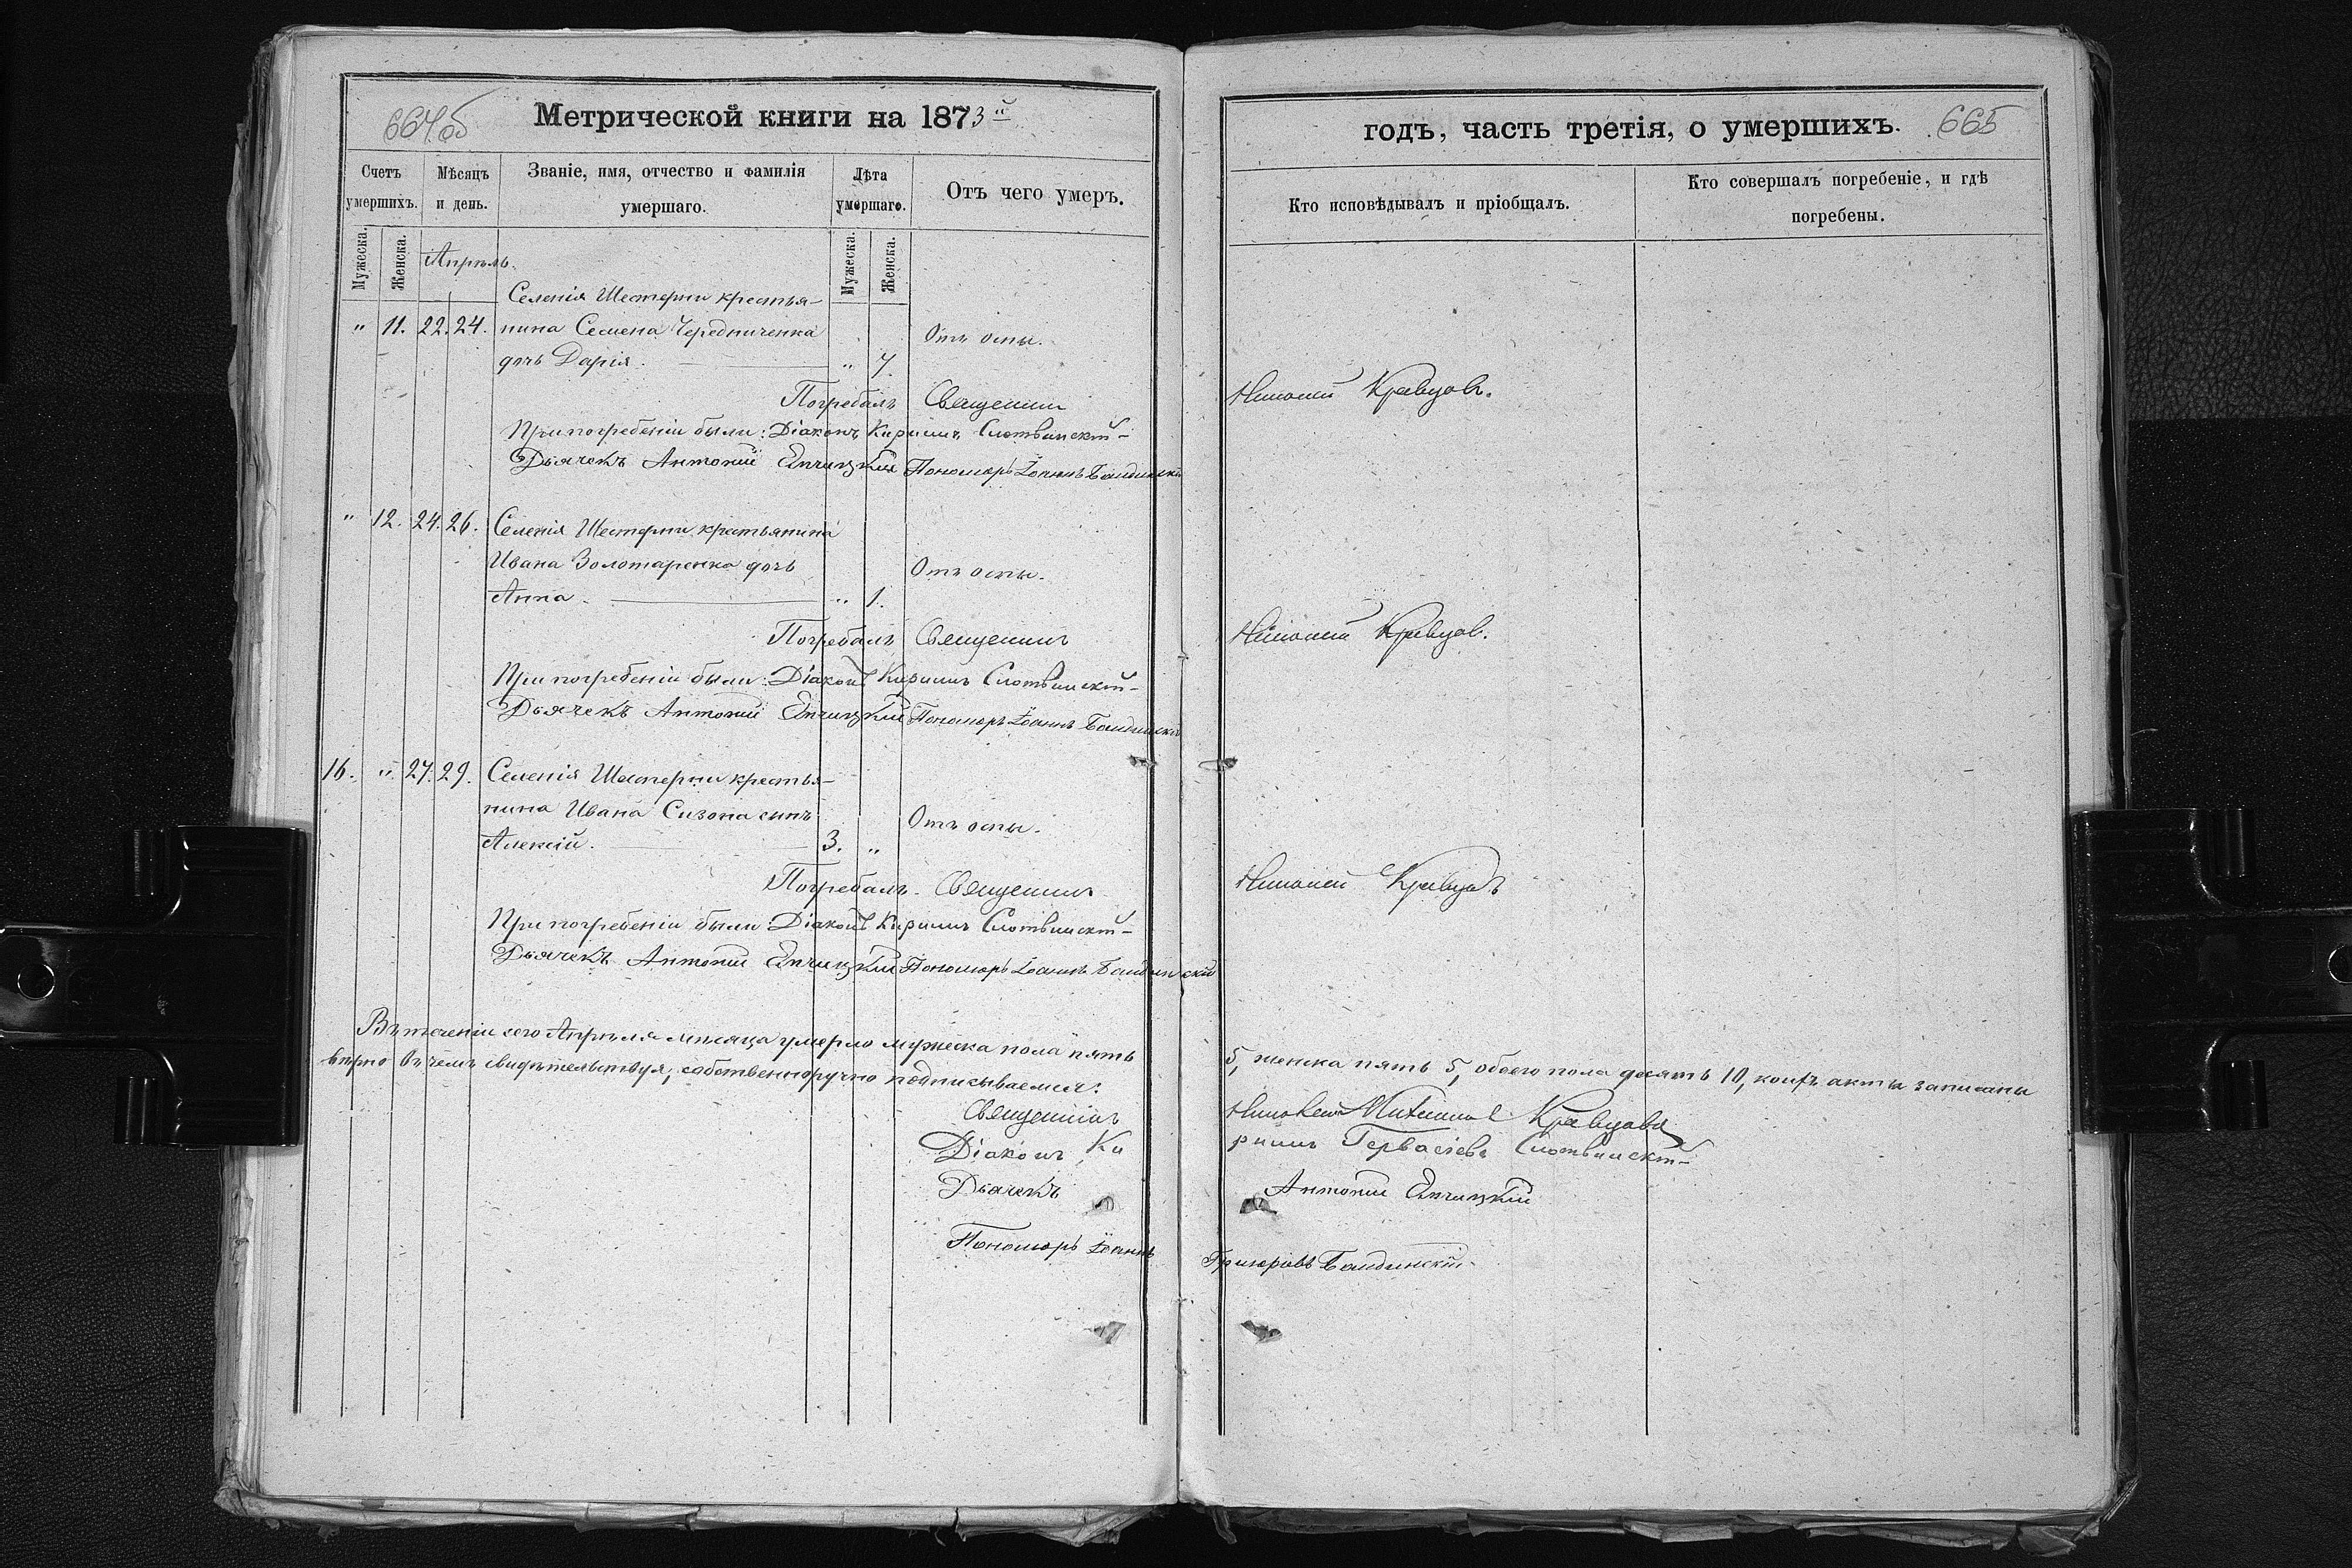 664об
Метрической книги на 1873й
годъ, часть третія, о умершихъ.
665
Счетъ умершихъ.
Мѣсяцъ и день.
Званіе, имя, отчество и фамилія умершаго.
Лѣта умершаго.
Отъ чего умеръ.
Кто исповѣдывалъ и пріобщалъ.
Кто совершалъ погребеніе, и гдѣ погребены.
Мужеска.
Женска.
Апрѣль.
Мужеска.
Женска.
Селенія Шестерни крестья-
" 11. 22. 24. нина Семена Чередниченка Отъ оспы.
дочь Дарія. " 7.
Погребалъ Священник Кравцовъ.
При погребеніи были: Діаконъ Кирилъ Слотвинскій-
Дьячекъ Антоній Пономарь Іоаннъ
" 12. 24. 26. Селенія Шестерни крестьянина
Ивана Золотаренка дочь Отъ оспы.
Анна. " 1.
Погребалъ Священникъ Кравцов.
При погребеніи были: Діаконъ Кирилъ Слотвинскій-
Дьячекъ Антоній Пономарь Іоаннъ
16. " 27. 29. Селенія Шестерни крестья-
нина Ивана Сизона сынъ Отъ оспы.
Алексій. 3. "
Погребалъ. Священникъ Кравцовъ
При погребеніи были Діаконъ Кирилъ Слотвинскій-
Дьячекъ Антоній Пономарь Іоаннъ
Въ теченіи сего Апрѣля мѣсяца умерло мужеска пола пять 5, женска пять 5, обоего пола десять 10, коихъ акты записаны
вѣрно въ чемъ свидѣтельствуя, собственноручно подписываемся:
Священникъ Кравцовъ
Діаконъ Кирилъ Гервасіевъ Слотвинскій-
Дьячекъ Антоній
Пономарь Іоаннъ Григоріевъ